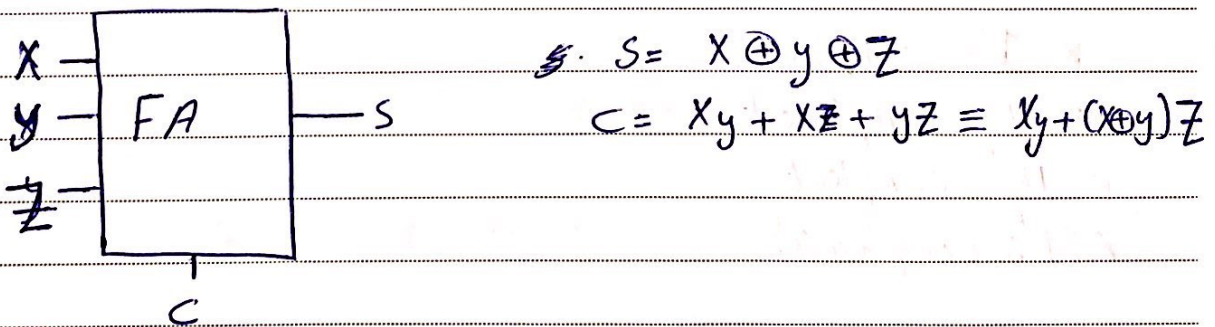 X
y
Z
FA
S
C
S= X ⊕ y ⊕ Z
C= Xy + XZ + yZ ≡ Xy+(X⊕y)Z